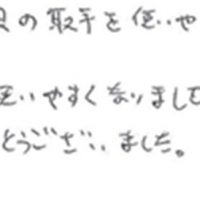 の取手を使いや
いやすくなりまし
とうございました。